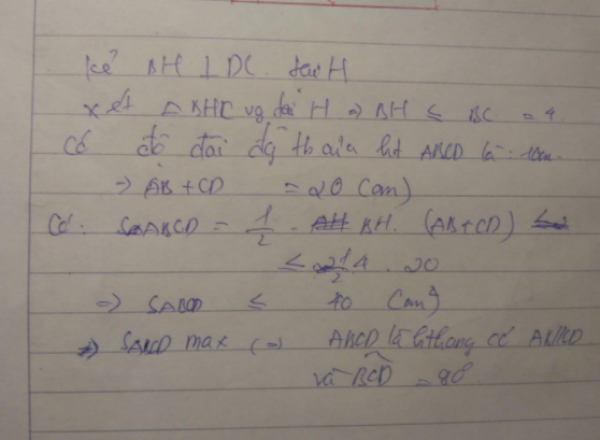 Kẻ BH ⊥ DC tại H
Xét △BHC vg tại H => BH ≤ BC = 4
Có độ dài đg tb của ht ABCD là: 10cm
=> AB + CD = 20 (cm)
Có: SABCD = 1/2 . BH. (AB+CD)
≤ 1/2 4 . 20
=> SABCD ≤ 40 (cm²)
=> SABCD max (=) ABCD là hthang có AB//CD
và BCD = 90°.